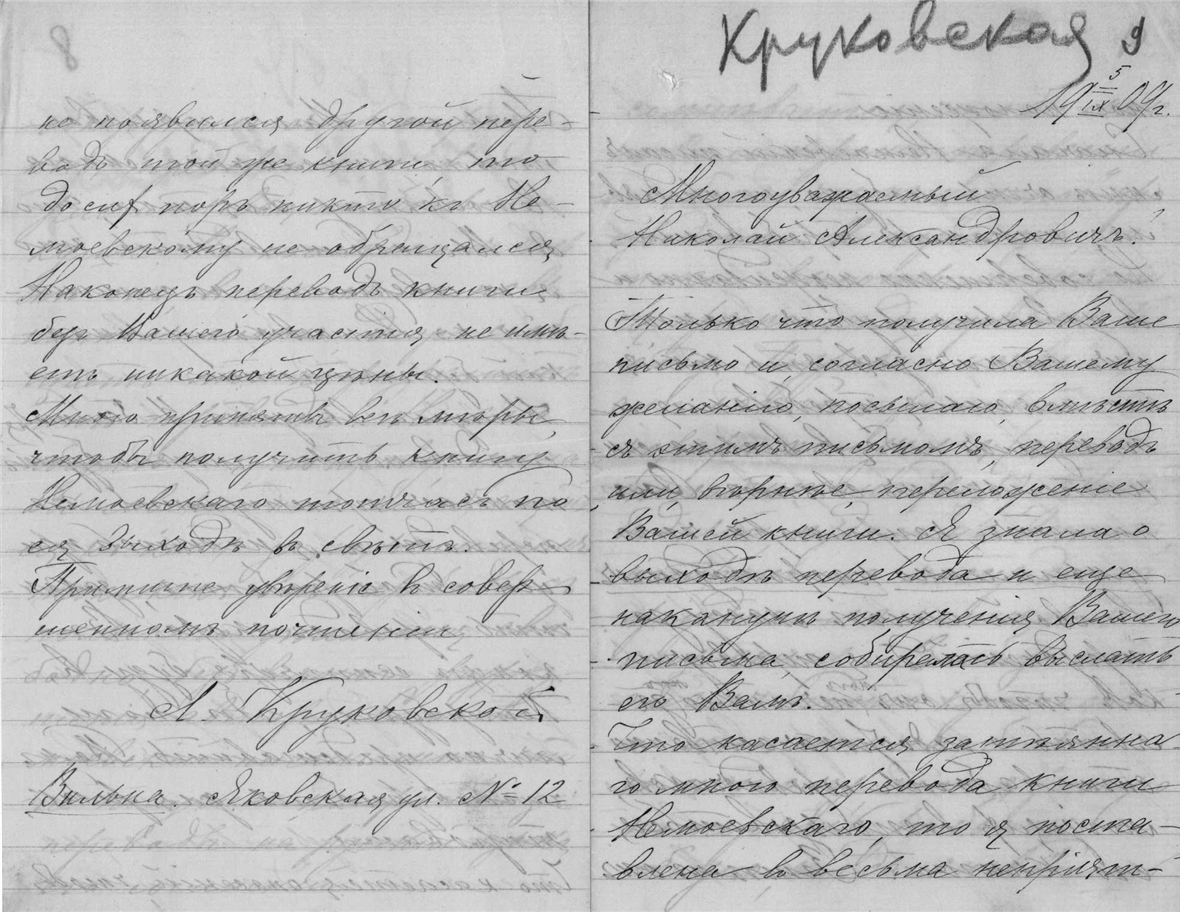 но появился другой пере-
водъ той же книги, то
до сихъ поръ никто къ Не-
моевскому не обращался
Наконецъ переводъ книги
безъ Вашего участія не имѣ-
етъ никакой цѣны.
Мною приняты всѣ мѣры,
чтобы получить книгу
Немоевскаго тотчасъ по
ея выходѣ въ свѣтъ.
Примите увѣреніе въ совер
шенномъ почтеніи
А. Круковской
Вильна. Яковская ул. № 12
Круковская 9
19 5/IX 09 г.
Многоуважаемый
Николай Александровичъ!
Только что получила Ваше
письмо и, согласно Вашему
желанію, посылаю, вмѣстѣ
съ этимъ письмомъ, переводъ
или, вѣрнѣе, переложеніе
Вашей книги. Я знала о
выходѣ перевода и еще
наканунѣ полученія Вашего
письма, собиралась выслать
его Вамъ.
Что касается затѣянна-
го мною перевода книги
Немоевскаго, то я поста-
влена въ весьма непріят-